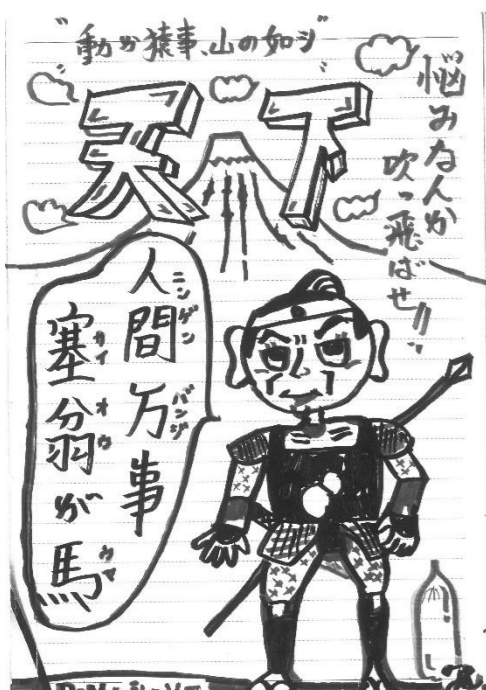 "動か猿事、山の如ジ"
天下
悩みなんか
吹っ飛ばせ!!
人間万事
ニンゲンバンジ
塞翁が馬
サイオウウマ